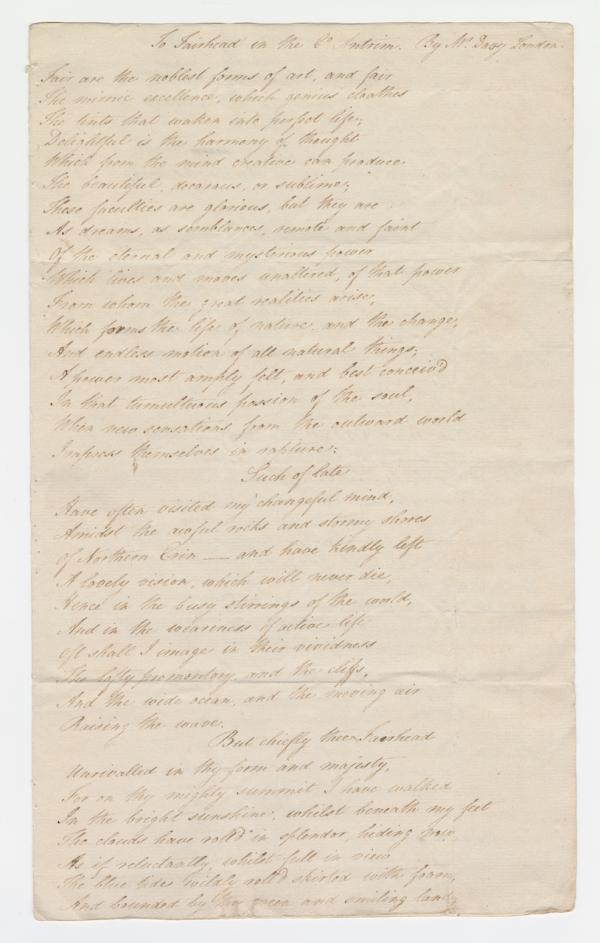 To Fairhead in the Co. Antrim. By Mr. Davy London.
Fair are the noblest forms of art, and fair
The mimic excellence, which genius cloathes
The tints that waken into perfect life;
Delightful is the harmony of thought
Which from the mind creative can produce
The beautiful, decorous, or sublime;
These faculties are glorious, but they are
As dreams, as semblances, remote and faint
Of the eternal and mysterious power
Which lives and moves unaltered, of that power
From whom the great realities arise,
Which forms the life of nature, and the change,
And endless motion of all natural things;
A power most amply felt, and best conceiv'd
In that tumultuous passion of the soul,
When new sensations from the outward world
Impress themselves in rapture;
Such of late
Have often visited my changeful mind,
Amidst the awful rocks and stormy shores
Of Northern Erin — and have kindly left
A lovely vision, which will never die,
Hence in the busy stirrings of the world,
And in the weariness of active life
Oft shall I image in their vividness
The lofty promontory, and the cliffs,
And the wide ocean, and the moving air
Raising the wave.
But chiefly thee Fairhead
Unrivalled in thy form and majesty,
For on thy mighty summit I have walked
In the bright sunshine, whilst beneath my feet
The clouds have roll'd in splendor, hiding now
As if reluctantly, whilst full in view
The blue tides wildly roll'd skirted with foam,
And bounded by the green and smiling land;